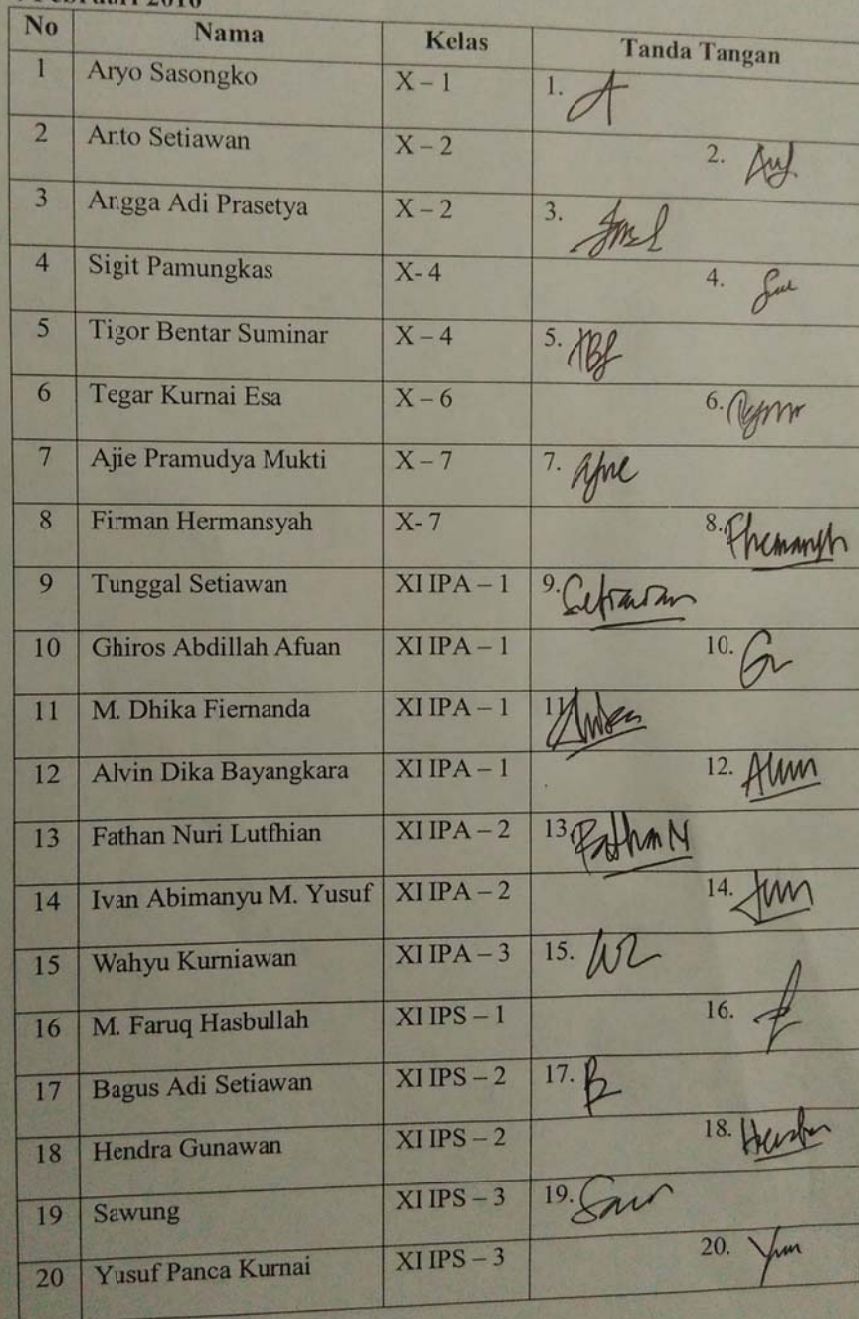 Februari 2016
No Nama Kelas Tanda Tangan
1 Aryo Sasongko X – 1 1.
2 Arto Setiawan X – 2 2.
3 Angga Adi Prasetya X – 2 3.
4 Sigit Pamungkas X- 4 4.
5 Tigor Bentar Suminar X – 4 5.
6 Tegar Kurnai Esa X – 6 6.
7 Ajie Pramudya Mukti X – 7 7.
8 Firman Hermansyah X- 7 8.
9 Tunggal Setiawan XI IPA – 1 9. Setiawan
10 Ghiros Abdillah Afuan XI IPA – 1 10.
11 M. Dhika Fiernanda XI IPA – 1 11
12 Alvin Dika Bayangkara XI IPA – 1 12.
13 Fathan Nuri Lutfhian XI IPA – 2 13. Fathan N
14 Ivan Abimanyu M. Yusuf XI IPA – 2 14.
15 Wahyu Kurniawan XI IPA – 3 15.
16 M. Faruq Hasbullah XI IPS – 1 16.
17 Bagus Adi Setiawan XI IPS – 2 17.
18 Hendra Gunawan XI IPS – 2 18.
19 Sawung XI IPS – 3 19.
20 Yusuf Panca Kurnai XI IPS – 3 20.